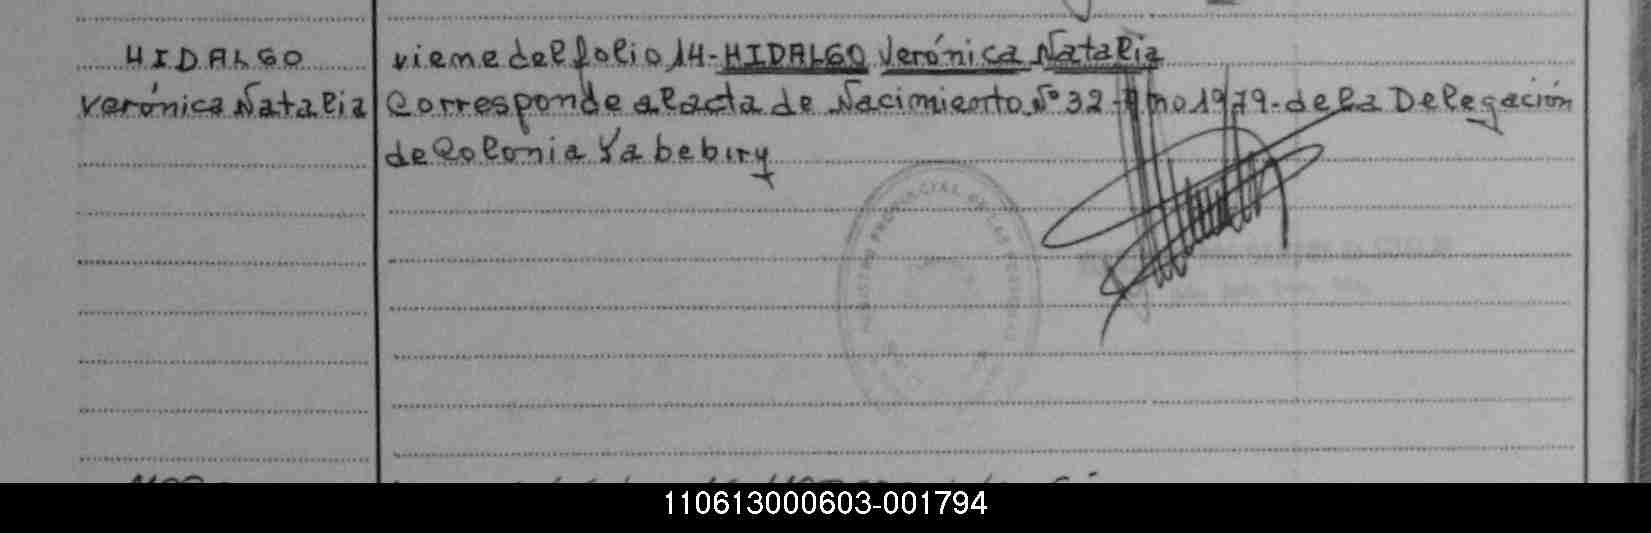 HIDALGO
Verónica Natalia
viene del folio 14-HIDALGO Verónica Natalia
Corresponde al acta de Nacimiento Nº 32-Año 1979-de la Delegación
de Colonia Yabebiry
PROVINCIAL DE LAS PERSONAS
110613000603-001794